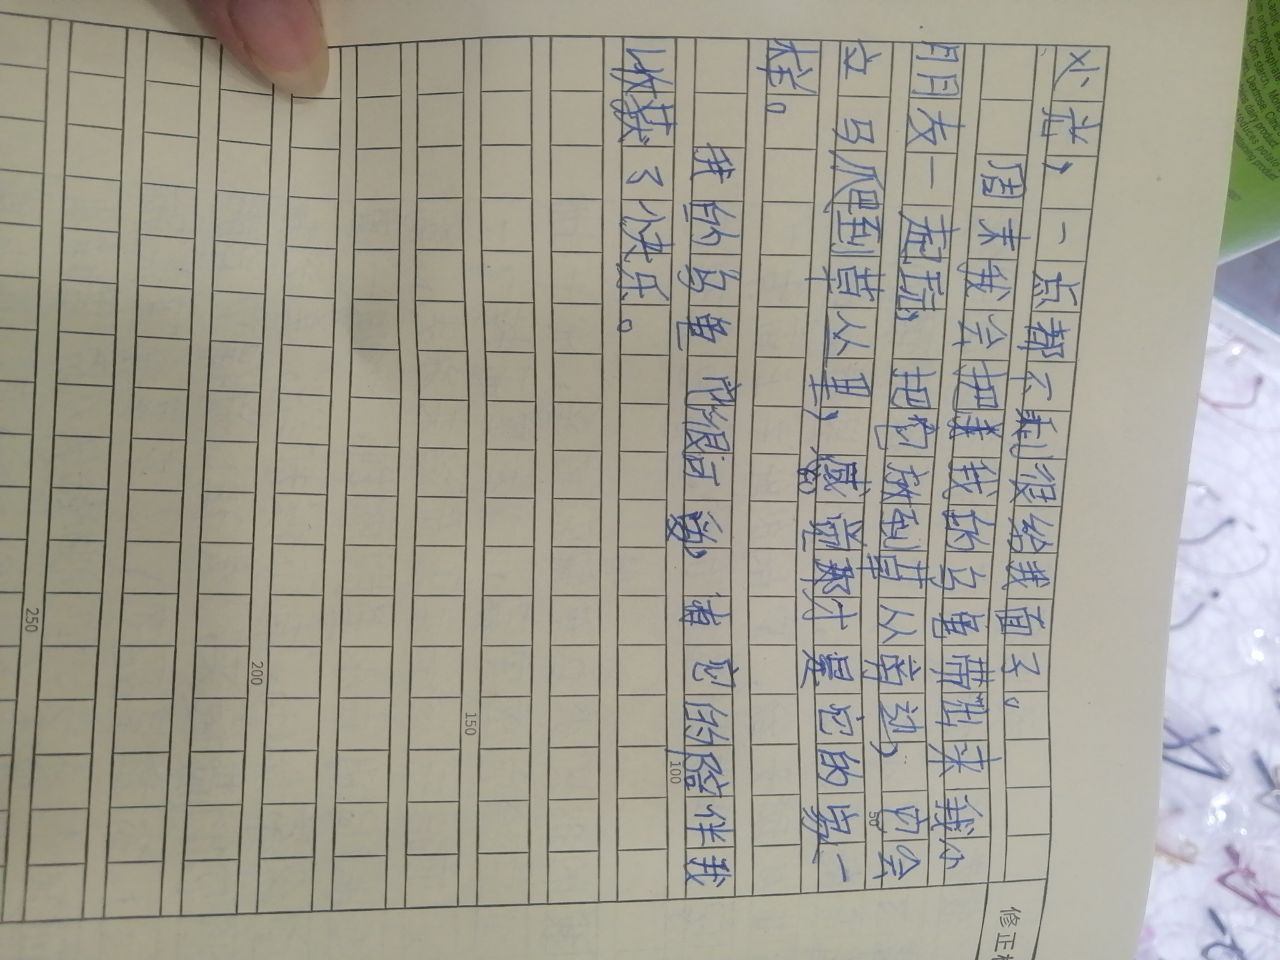 光，一点都不剩很给我面子。
周末我会把美我的乌龟带出来我小
月月友一起玩，把它放到草丛旁边，它会
立马爬到草丛里，感觉那才是它的家一
样。
我的乌龟它很可爱，有它的陪伴我
收获了快乐。
50
100
150
200
250
修正